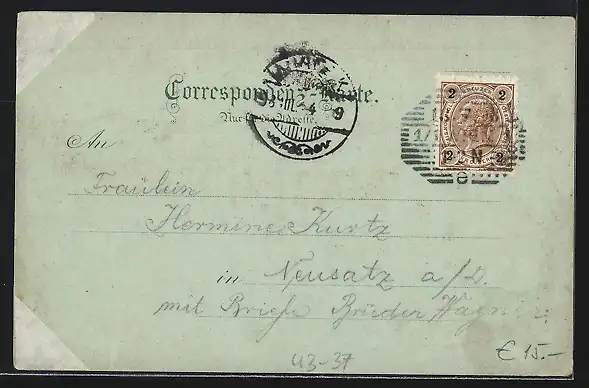 Correspondenz-Karte.
Nur für die Adresse.
2 2
2 2
9
1/1
e
An
Fräulein
Hermine Kurtz
in Neusatz a/D.
mit Briefe Brüder Wagner
U3-37
€ 15.-